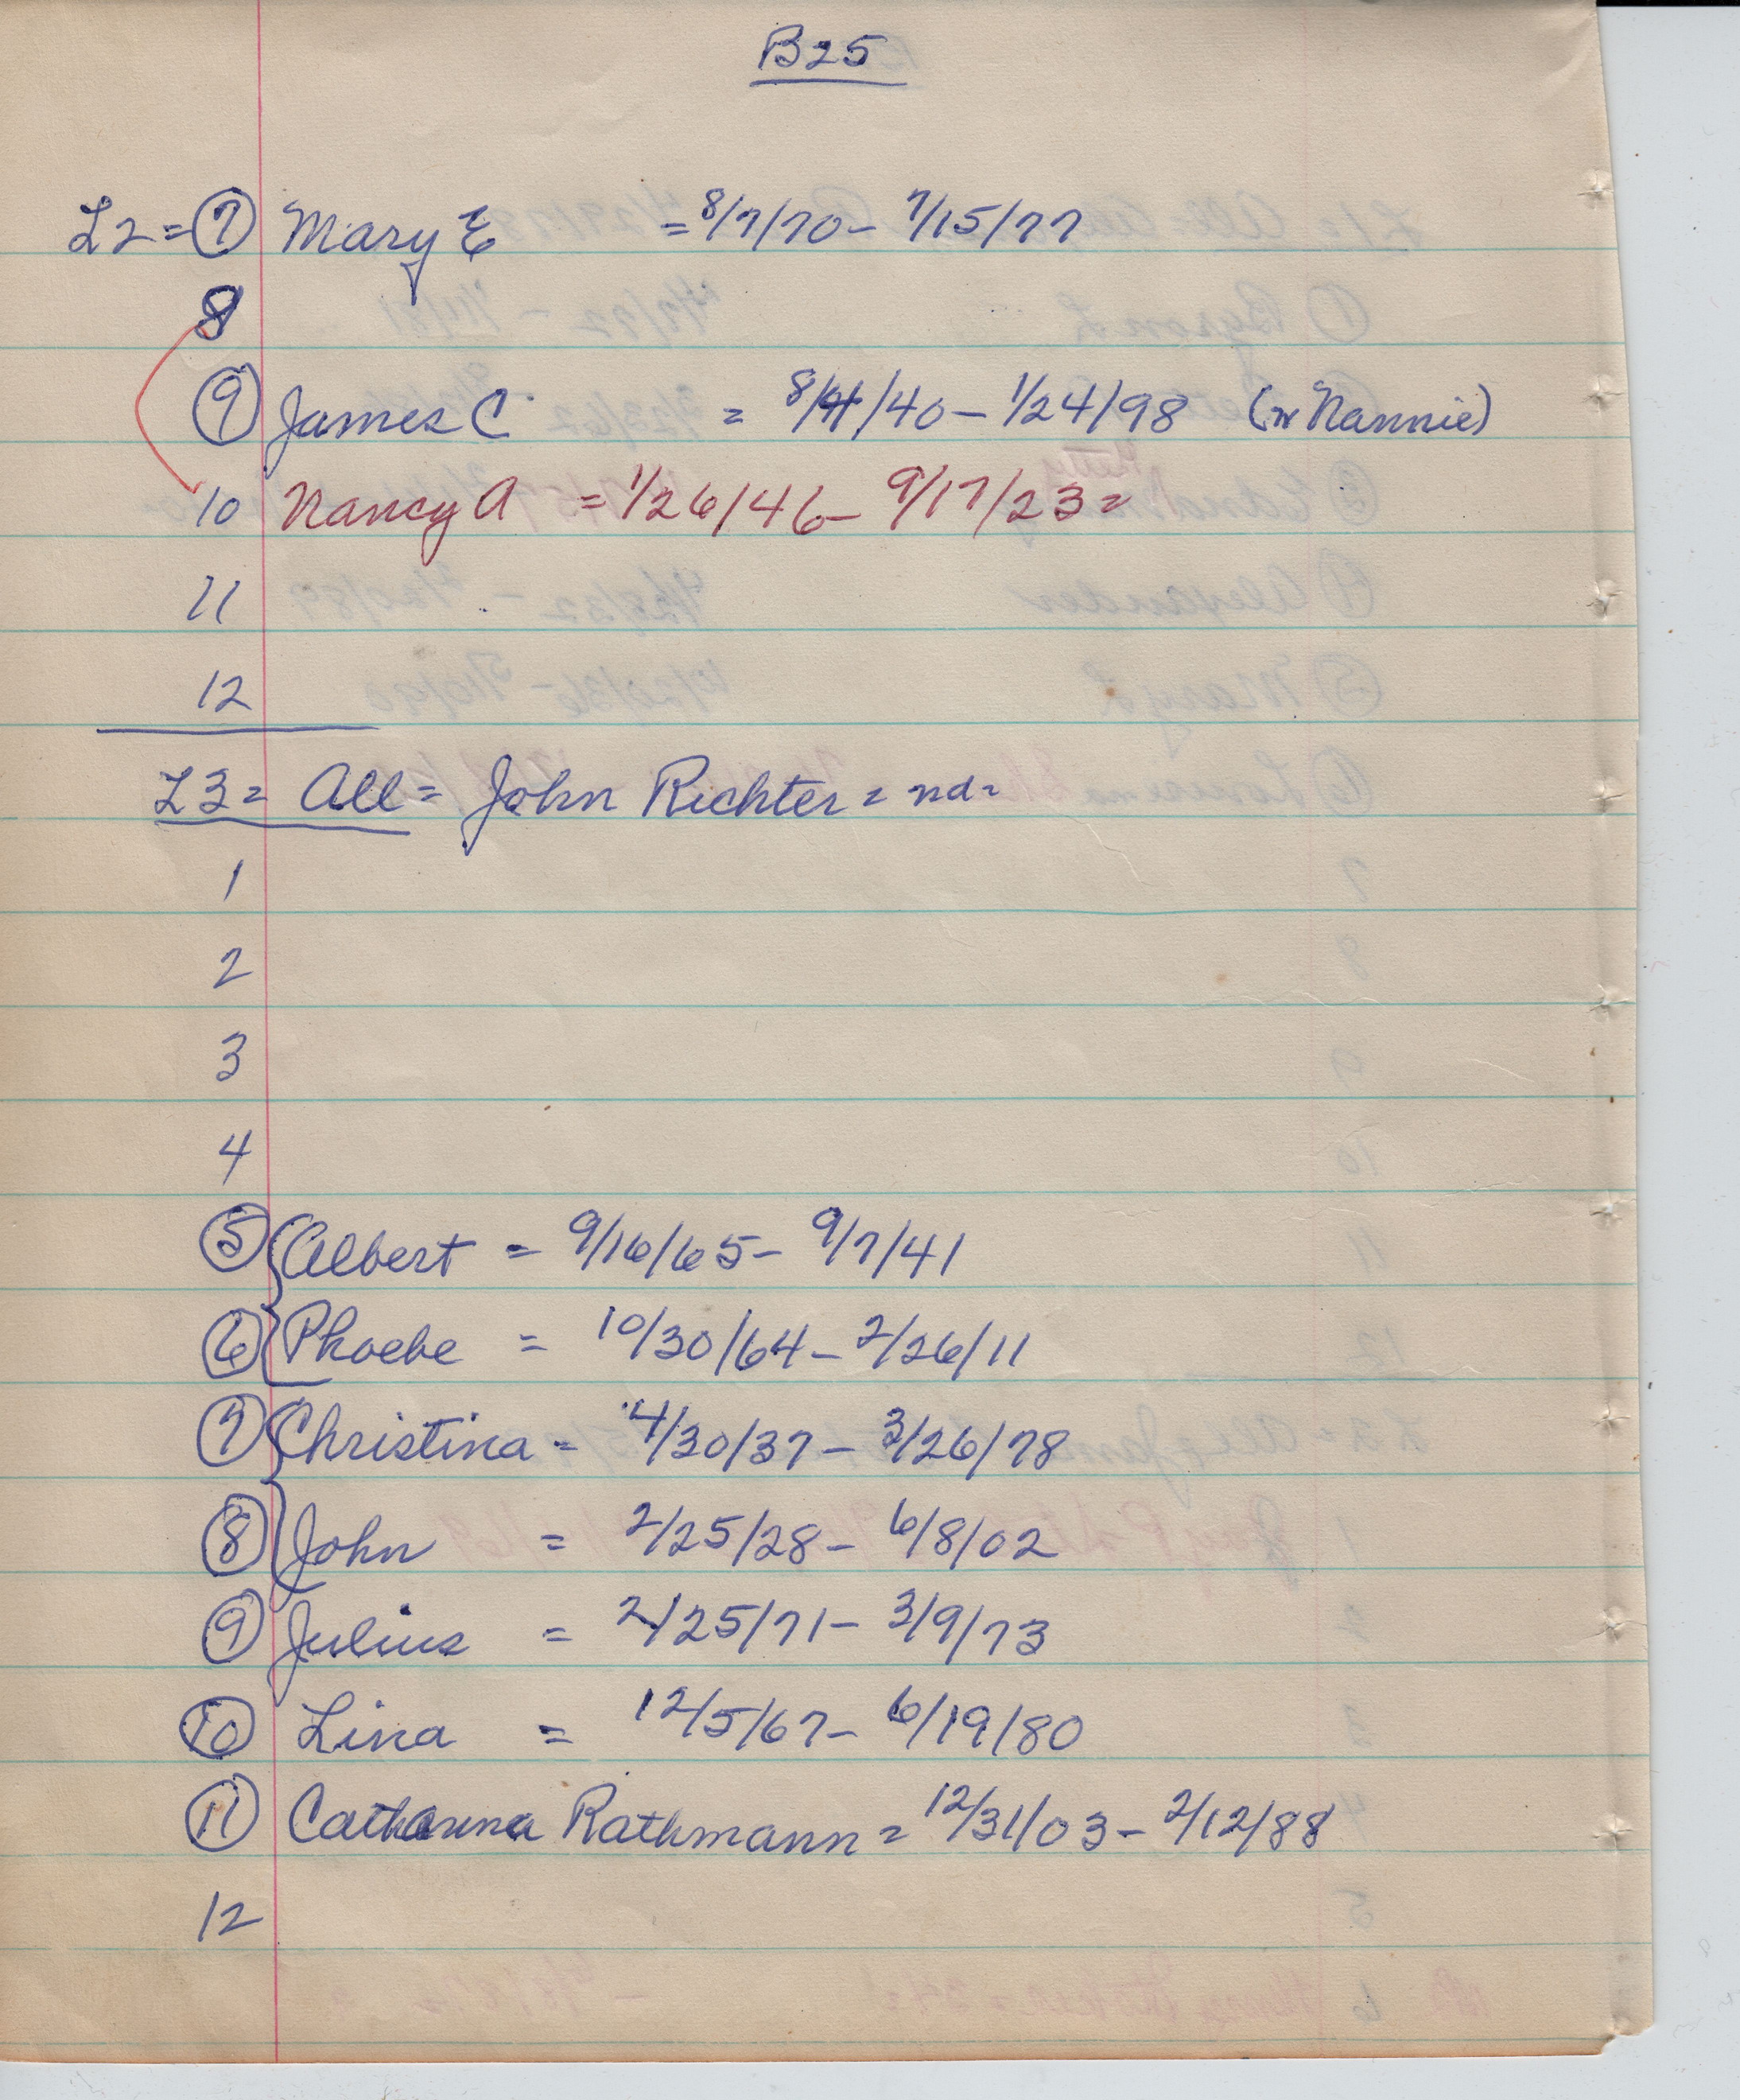 B25
L2 = 7 Mary E = 8/7/70 - 7/15/77
8
9 James C = 8/4/40 - 1/24/98 (w Nannie)
10 Nancy A = 1/26/46 - 9/17/23 =
11
12
L3 = All = John Richter = nd -
1
2
3
4
5 Albert = 9/16/65 - 9/7/41
6 Phoebe = 10/30/64 - 2/26/11
7 Christina = 4/30/37 - 3/26/78
8 John = 2/25/28 - 6/8/02
9 Julius = 2/25/71 - 3/9/73
10 Lina = 12/5/67 - 6/19/80
11 Catharina Rathmann = 12/31/03 - 2/12/88
12